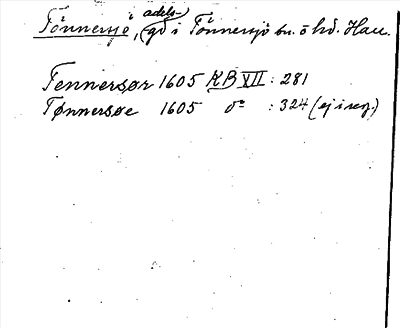 Tönnersjö, adels-gd i Tönnersjö sn. o hd. Hall.
Tennersør 1605 KB XII : 281
Tønnersøe 1605 do : 324 (ej i reg.)